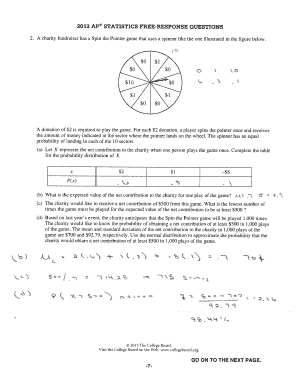 2012 AP® STATISTICS FREE-RESPONSE QUESTIONS
2. A charity fundraiser has a Spin the Pointer game that uses a spinner like the one illustrated in the figure below.
10
$0 $1
$0 $0
$10 $0
$0 $1
$0 $1
0 1 10
.6 .3 .1
A donation of $2 is required to play the game. For each $2 donation, a player spins the pointer once and receives
the amount of money indicated in the sector where the pointer lands on the wheel. The spinner has an equal
probability of landing in each of the 10 sectors.
(a) Let X represent the net contribution to the charity when one person plays the game once. Complete the table
for the probability distribution of X.
x $2 $1 –$8
P(x) .6 .3 .1
(b) What is the expected value of the net contribution to the charity for one play of the game?
(c) The charity would like to receive a net contribution of $500 from this game. What is the fewest number of
times the game must be played for the expected value of the net contribution to be at least $500 ?
(d) Based on last year's event, the charity anticipates that the Spin the Pointer game will be played 1,000 times.
The charity would like to know the probability of obtaining a net contribution of at least $500 in 1,000 plays
of the game. The mean and standard deviation of the net contribution to the charity in 1,000 plays of the
game are $700 and $92.79, respectively. Use the normal distribution to approximate the probability that the
charity would obtain a net contribution of at least $500 in 1,000 plays of the game.
(b) = 2(.6) + 1(.3) + -8(.1) = .7 70¢
(c) 500/.7 = 714.28 → 715
(d) P(x > 500) 500 - 700 = -2.16
92.79
98.44%
© 2012 The College Board.
Visit the College Board on the Web: www.collegeboard.org.
GO ON TO THE NEXT PAGE.
-7-